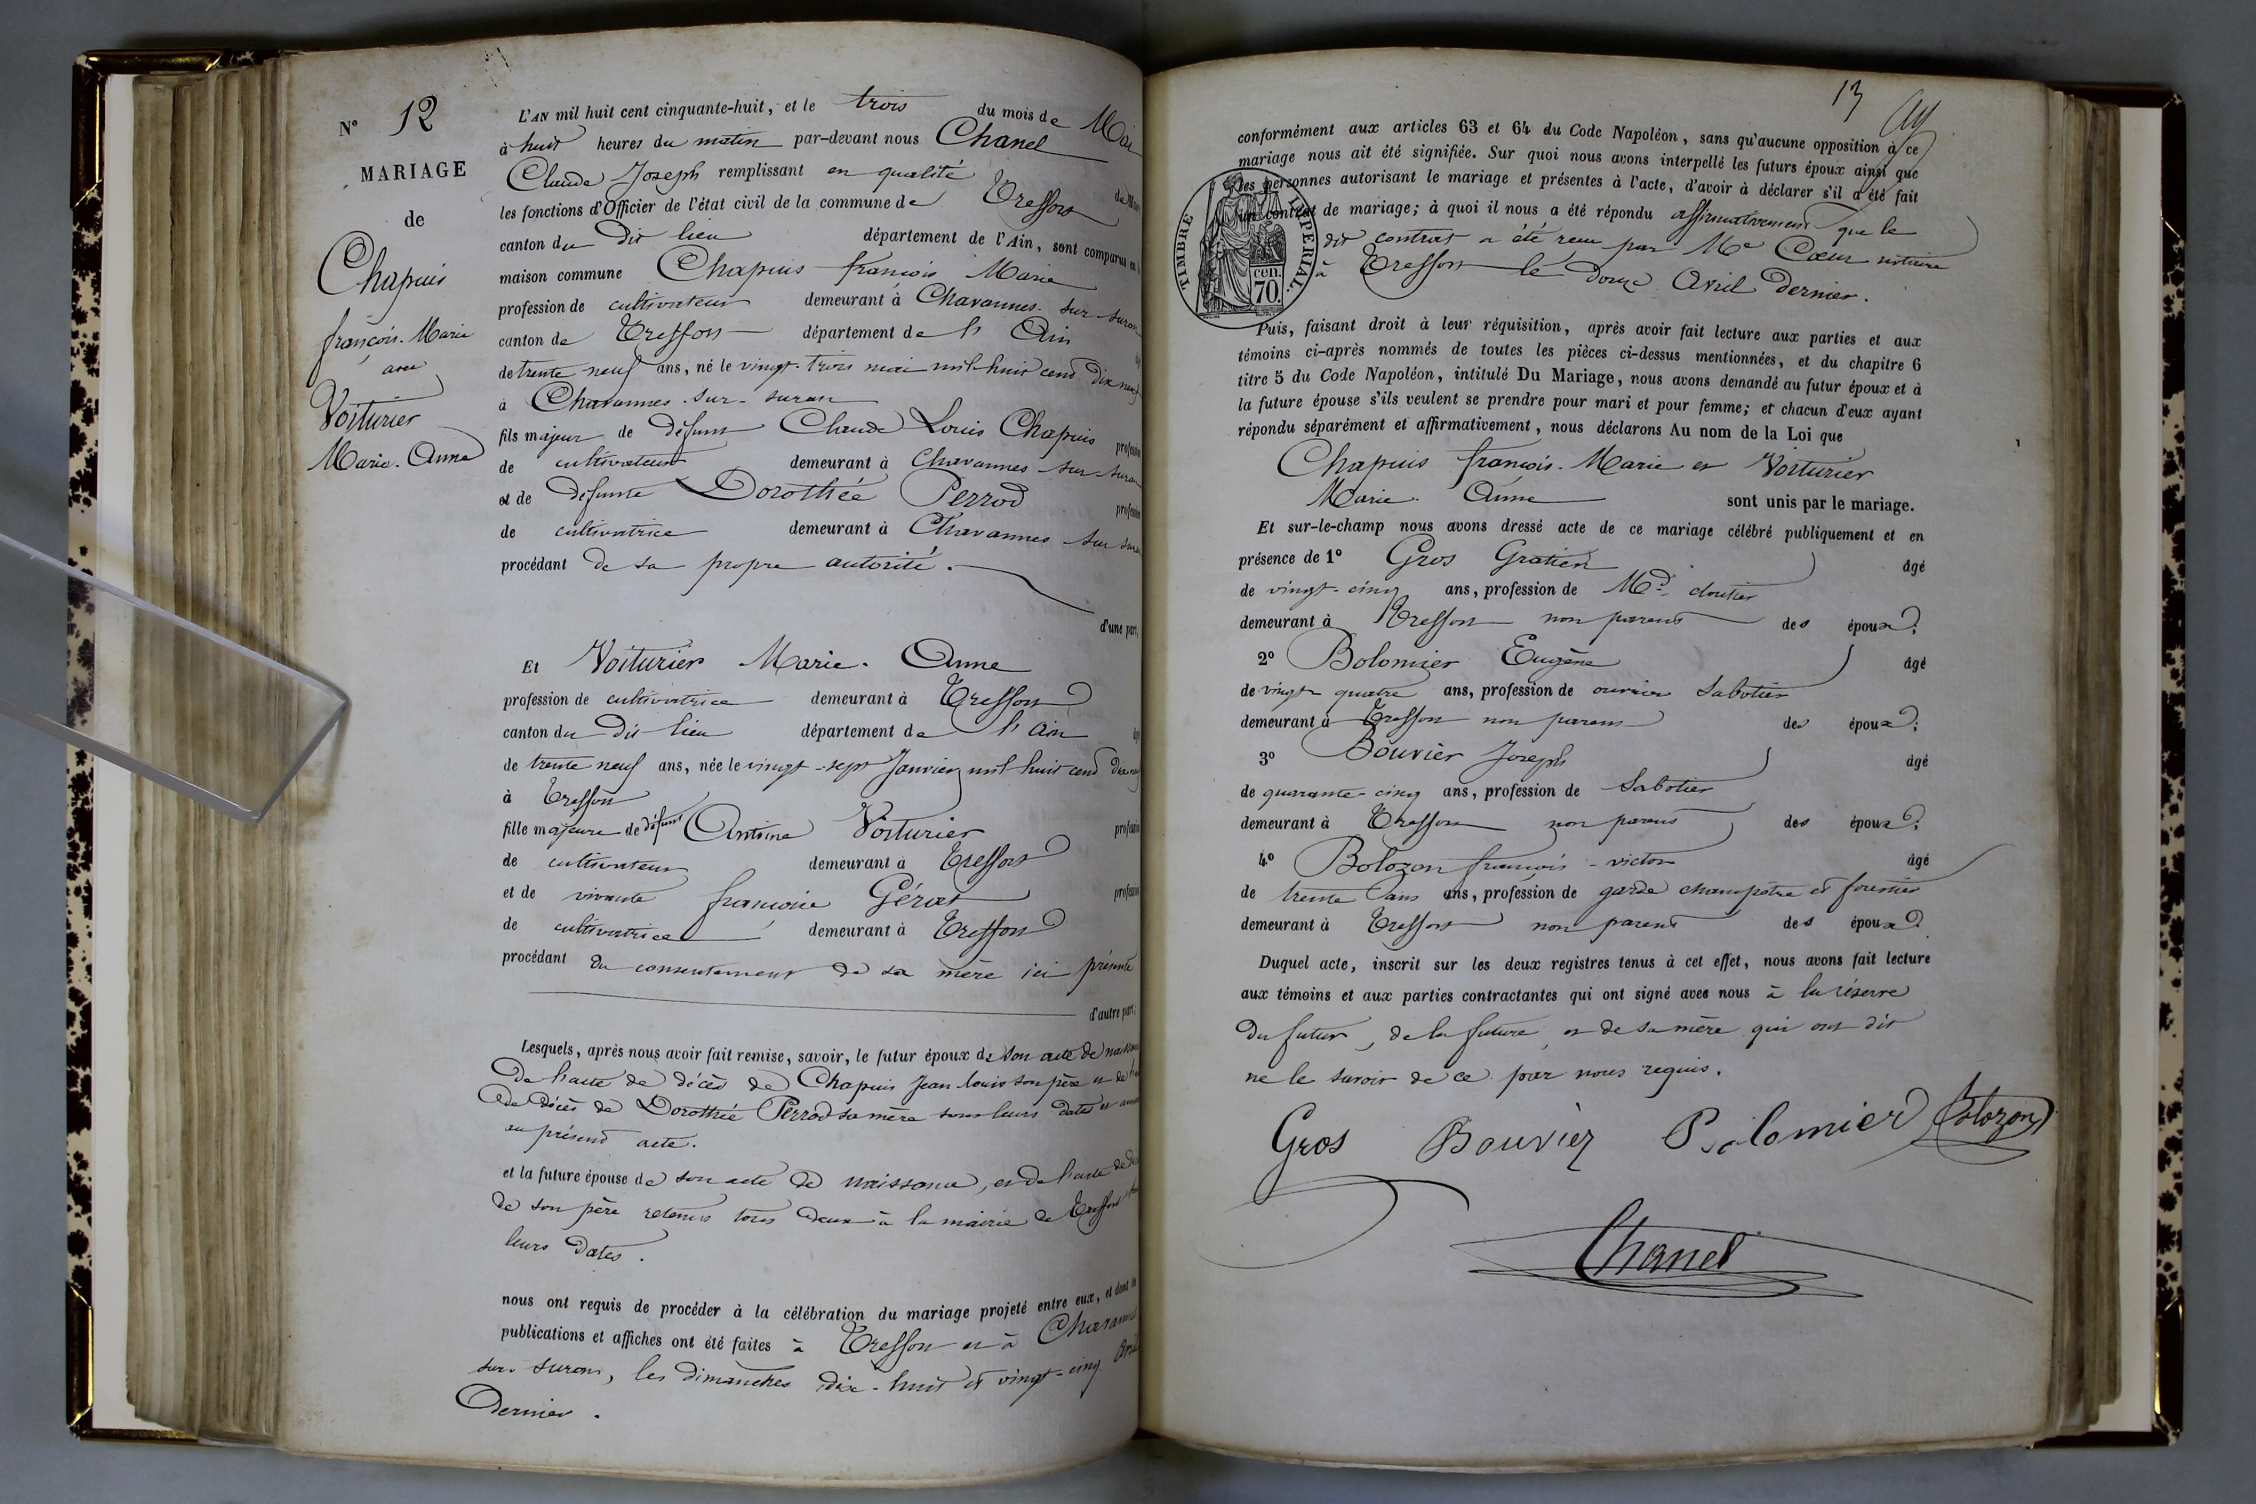 N° 12
MARIAGE
de
Chapuis
françois-Marie
avec
Voiturier
Marie-Anne
L'AN mil huit cent cinquante-huit, et le trois du mois de Mai
à huit heures du matin par-devant nous Chanel
Claude Joseph remplissant en qualité de
les fonctions d'Officier de l'état civil de la commune de Treffort
canton du dit lieu département de l'Ain, sont comparus en
maison commune Chapuis françois Marie
profession de cultivateur demeurant à Chavannes-sur-suran
canton de Treffort département de l'Ain
de trente neuf ans, né le vingt-trois mai mil huit cent dix neuf
à Chavannes-sur-suran
fils majeur de défunt Claude Louis Chapuis profession
de cultivateur demeurant à Chavannes-sur-suran
et de défunte Dorothée Perrod profession
de cultivatrice demeurant à Chavannes-sur-suran
procédant de sa propre autorité.
d'une part,
Et Voiturier Marie-Anne
profession de cultivatrice demeurant à Treffort
canton du dit lieu département de l'Ain
de trente neuf ans, née le vingt-sept Janvier mil huit cent dix neuf
à Treffort
fille majeure de défunt Antoine Voiturier profession
de cultivateur demeurant à Treffort
et de vivante françoise profession
de cultivatrice demeurant à Treffort
procédant du consentement de sa mère ici présente
d'autre part;
Lesquels, après nous avoir fait remise, savoir, le futur époux de son acte de naissance
De l'acte de décès de Chapuis Jean louis son père et de
de décès de Dorothée Perrod sa mère sous leurs dates et
au présent acte.
et la future épouse de son acte de naissance, et de l'acte de
de son père retenus tous deux à la mairie de Treffort
leurs dates.
nous ont requis de procéder à la célébration du mariage projeté entre eux, et dont les
publications et affiches ont été faites à Treffort et à Chavannes
sur-suran, les dimanches dix-huit et vingt-cinq Avril
dernier.
13
conformément aux articles 63 et 64 du Code Napoléon, sans qu'aucune opposition à ce
mariage nous ait été signifiée. Sur quoi nous avons interpellé les futurs époux ainsi que
les personnes autorisant le mariage et présentes à l'acte, d'avoir à déclarer s'il a été fait
un contrat de mariage; à quoi il nous a été répondu affirmativement que le
dit contrat a été reçu par Me Cœur notaire
à Treffort le douze Avril dernier.
TIMBRE IMPERIAL.
cen.
70.
Puis, faisant droit à leur réquisition, après avoir fait lecture aux parties et aux
témoins ci-après nommés de toutes les pièces ci-dessus mentionnées, et du chapitre 6
titre 5 du Code Napoléon, intitulé Du Mariage, nous avons demandé au futur époux et à
la future épouse s'ils veulent se prendre pour mari et pour femme; et chacun d'eux ayant
répondu séparément et affirmativement, nous déclarons Au nom de la Loi que
Chapuis françois-Marie et Voiturier
Marie-Anne sont unis par le mariage.
Et sur-le-champ nous avons dressé acte de ce mariage célébré publiquement et en
présence de 1° Gros Gratien âgé
de vingt-cinq ans, profession de Md. cloutier
demeurant à Treffort non parent des époux;
2° Bolomier Eugène âgé
de vingt quatre ans, profession de ouvrier Sabotier
demeurant à Treffort non parent des époux;
3° Bouvier Joseph âgé
de quarante-cinq ans, profession de Sabotier
demeurant à Treffort non parent des époux;
4° Bolozon françois-victor âgé
de trente ans ans, profession de garde champêtre et forestier
demeurant à Treffort non parent des époux
Duquel acte, inscrit sur les deux registres tenus à cet effet, nous avons fait lecture
aux témoins et aux parties contractantes qui ont signé avec nous à la réserve
du futur, de la future et de sa mère qui ont dit
ne le savoir de ce par nous requis.
Gros Bouvier Bolomier Bolozon
Chanel